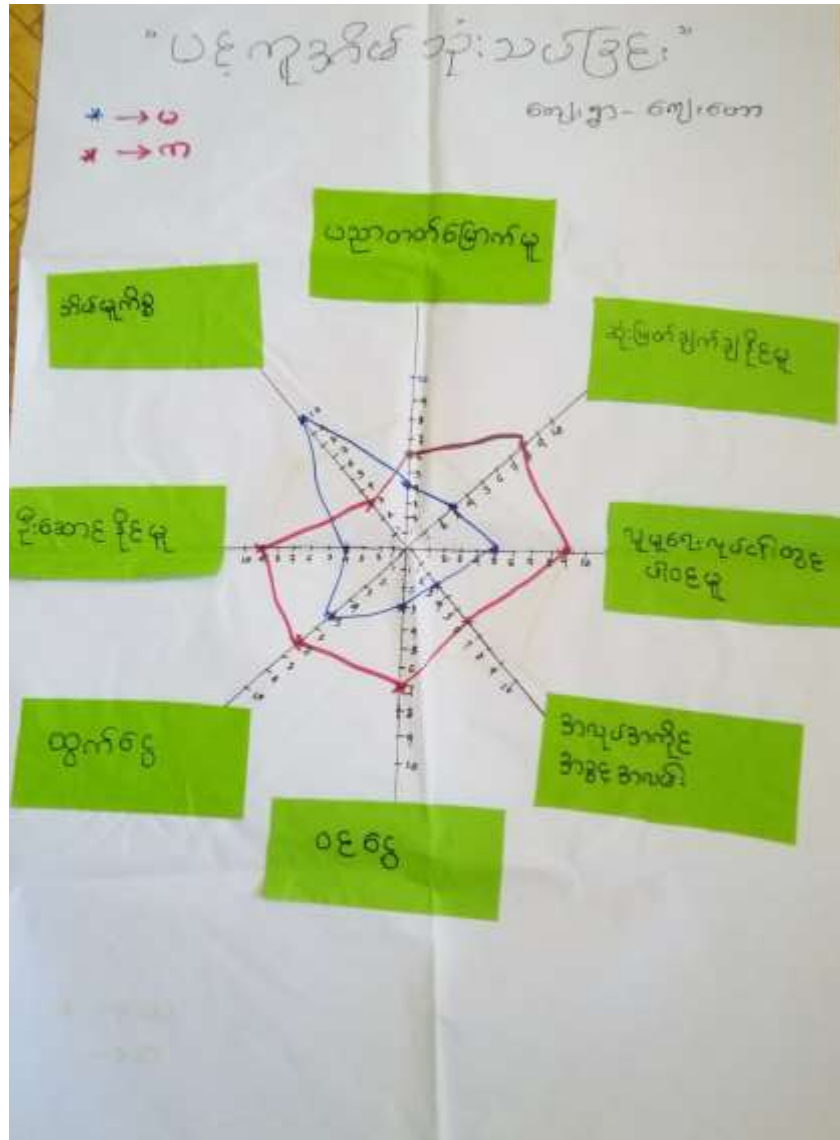 "ပင့်ကူအိမ် သုံးသပ်ခြင်း"
* → မ
ကျေးရွာ - ကျေးတော
* → က
ပညာတတ်မြောက်မှု
အိမ်မှုကိစ္စ
ဆုံးဖြတ်ချက်ချနိုင်မှု
ဦးဆောင်နိုင်မှု
လူမှုရေးလုပ်ငန်းတွင်
ပါဝင်မှု
ထွက်ငွေ
အလုပ်အကိုင်
အခွင့်အလမ်း
ဝင်ငွေ